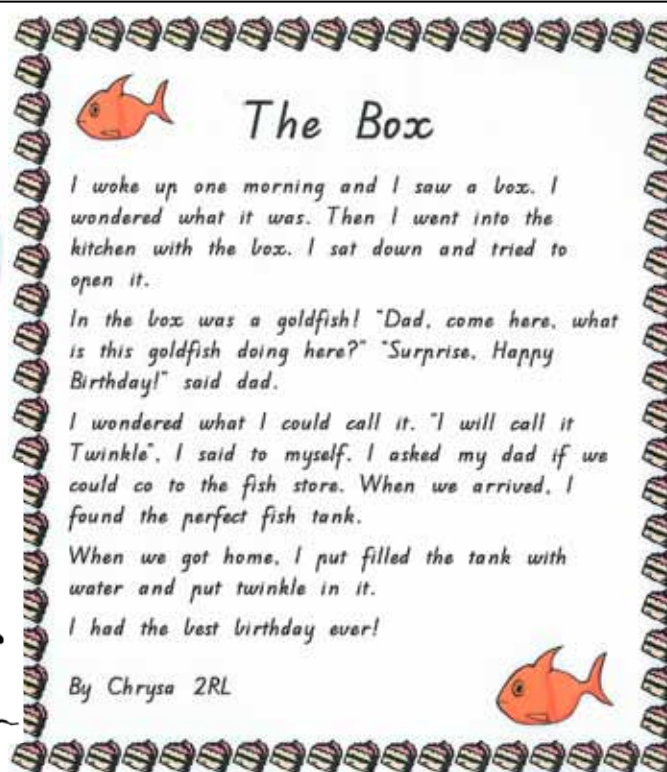 The Box
I woke up one morning and I saw a box. I
wondered what it was. Then I went into the
kitchen with the box. I sat down and tried to
open it.
In the box was a goldfish! "Dad, come here, what
is this goldfish doing here?" "Surprise, Happy
Birthday!" said dad.
I wondered what I could call it. "I will call it
Twinkle", I said to myself. I asked my dad if we
could co to the fish store. When we arrived, I
found the perfect fish tank.
When we got home, I put filled the tank with
water and put twinkle in it.
I had the best birthday ever!
By Chrysa 2RL